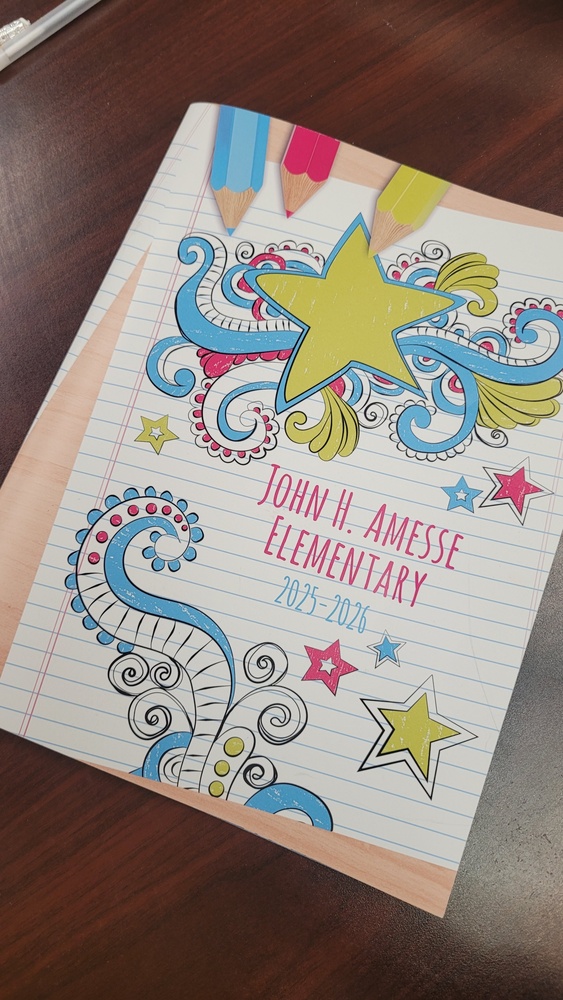 John H. Amesse
Elementary
2025-2026